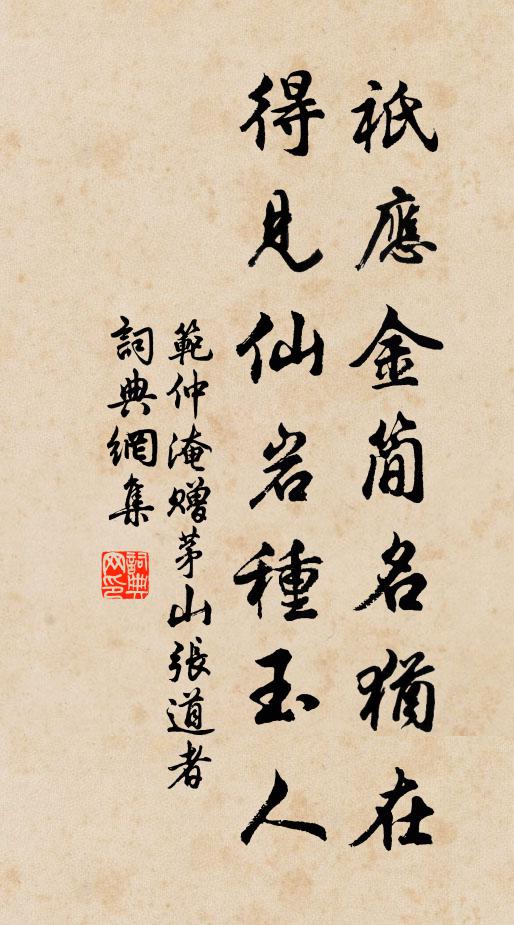 祇應金簡名猶在
得見仙岩種玉人
範仲淹贈茅山張道者
詞典網集
詞典網印